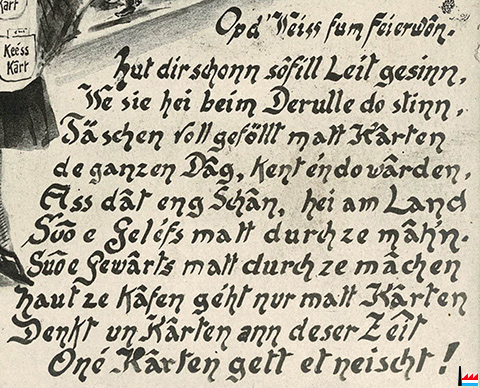 Kart
Kee'ss
Kârt
Opd' Weiss fum Feierwôn.
Hut dir schonn sôfill Leit gesinn,
We sie hei beim Derulle do stinn,
Täschen voll geföllt matt Kârten
de ganzen Dâg, kent én do wârden,
Ass dât eng Schân, hei am Land
Sûo e Geléfs matt durch ze mâhn.
Sûo e Gewârts matt durch ze mâchen
haut ze Kâfen géht nur matt Kârten
Denkt un Kârten ann deser Zêit
Oné Kârten gett et neischt!